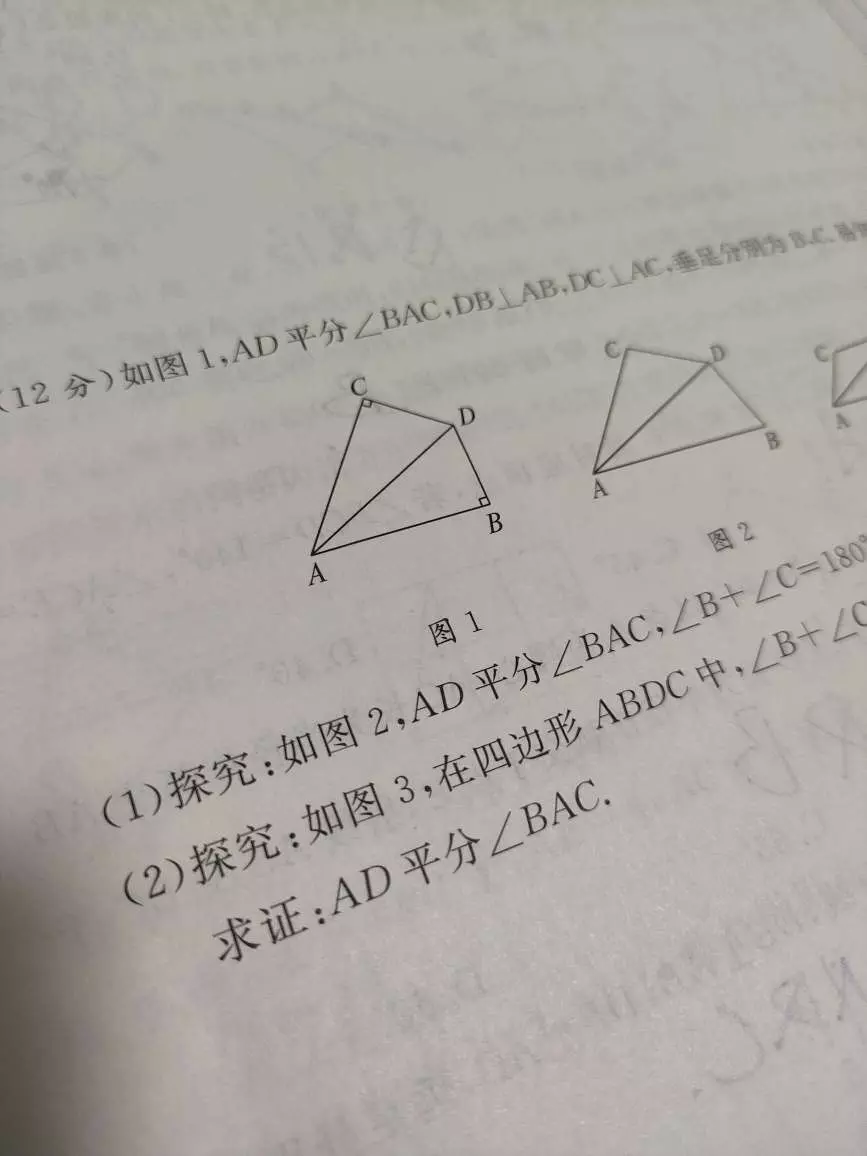 (12 分)如图 1,AD 平分∠BAC,DB⊥AB,DC⊥AC,垂足分别为 B、C.易知
C
D
B
A
图 1
C
D
B
A
图 2
C
A
(1)探究:如图 2,AD 平分∠BAC,∠B+∠C=180°
(2)探究:如图 3,在四边形 ABDC 中,∠B+∠C
求证:AD 平分∠BAC.